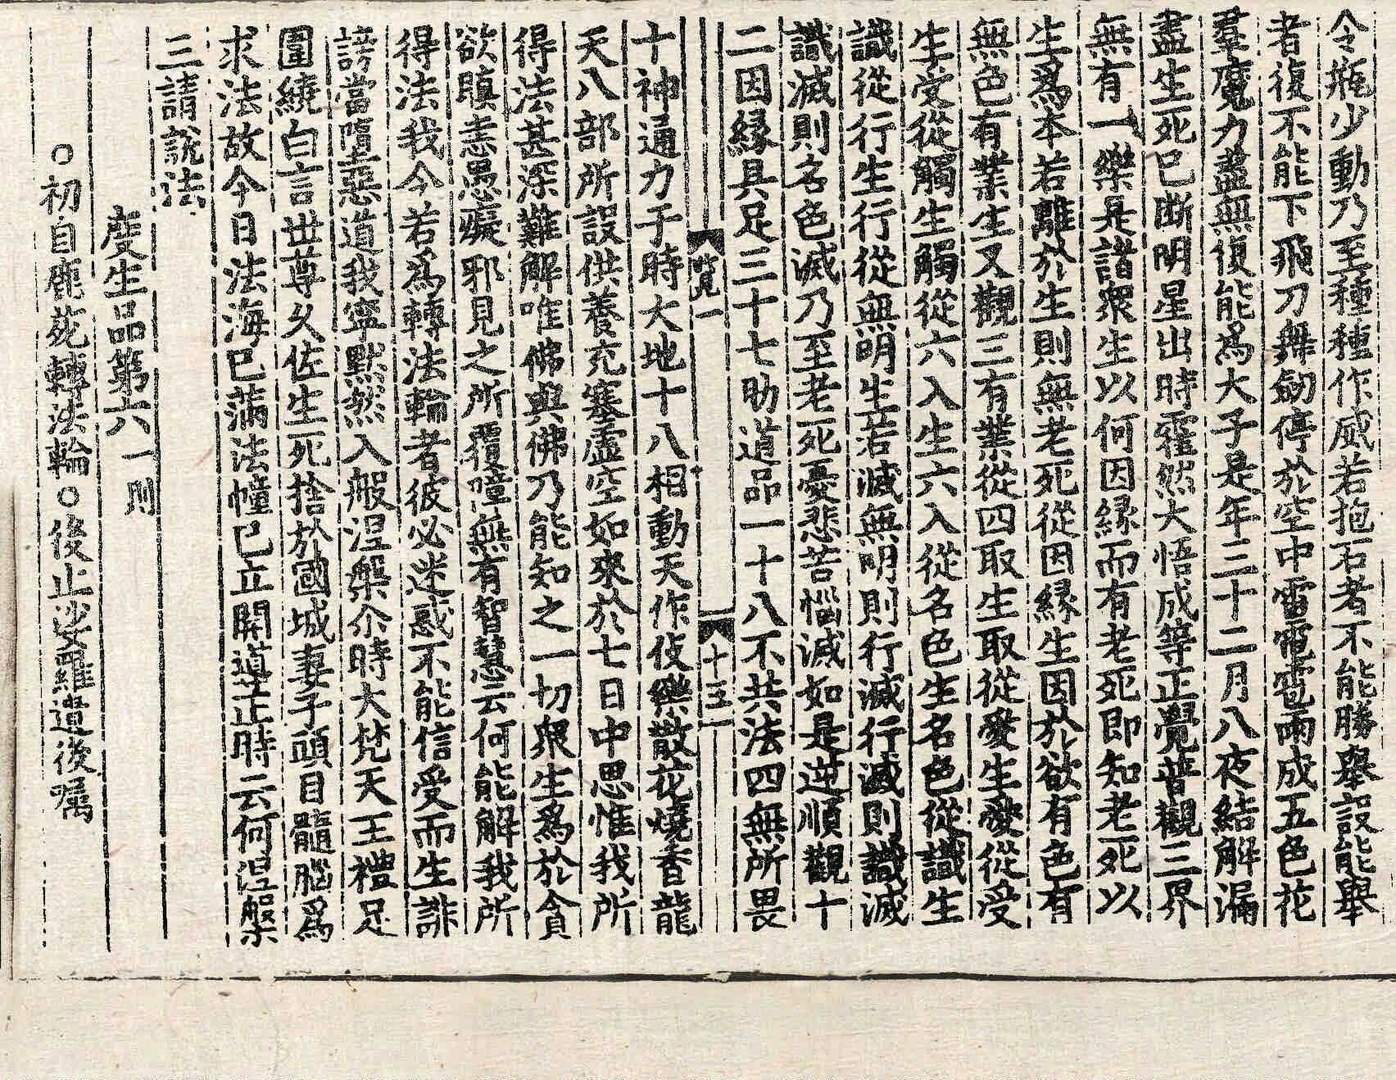 令瓶少動乃至種種作威若抱石者不能勝舉設能舉
者復不能下飛刀舞劒停於空中雷電雹雨成五色花
羣魔力盡無復能爲大子是年三十二月八夜結解漏
盡生死已断明星出時霍然大悟成等正覺普觀三界
無有一樂是諸衆生以何因縁而有老死即知老死以
生爲本若離於生則無老死從因縁生因於欲有色有
無色有業生又觀三有業從四取生取從愛生愛從受
生受從觸生觸從六入生六入從名色生名色從識生
識從行生行從無明生若滅無明則行滅行滅則識滅
識滅則名色滅乃至老死憂悲苦惱滅如是逆順觀十
二因縁具足三十七助道品一十八不共法四無所畏
覽一 十五
十神通力于時大地十八相動天作伎樂散花燒香龍
天八部所設供養充塞虛空如來於七日中思惟我所
得法甚深難解唯佛與佛乃能知之一切衆生爲於貪
欲瞋恚愚癡邪見之所覆噎無有智慧云何能解我所
得法我今若爲轉法輪者彼必迷惑不能信受而生誹
謗當墮惡道我寧默然入般涅槃尒時大梵天王禮足
圍繞白言世尊久佐生死捨於國城妻子頭目髓腦爲
求法故今日法海已滿法幢已立開導正時云何涅槃
三請說法
度生品第六 一則
○初自鹿苑轉法輪○後止娑羅遺後嘱